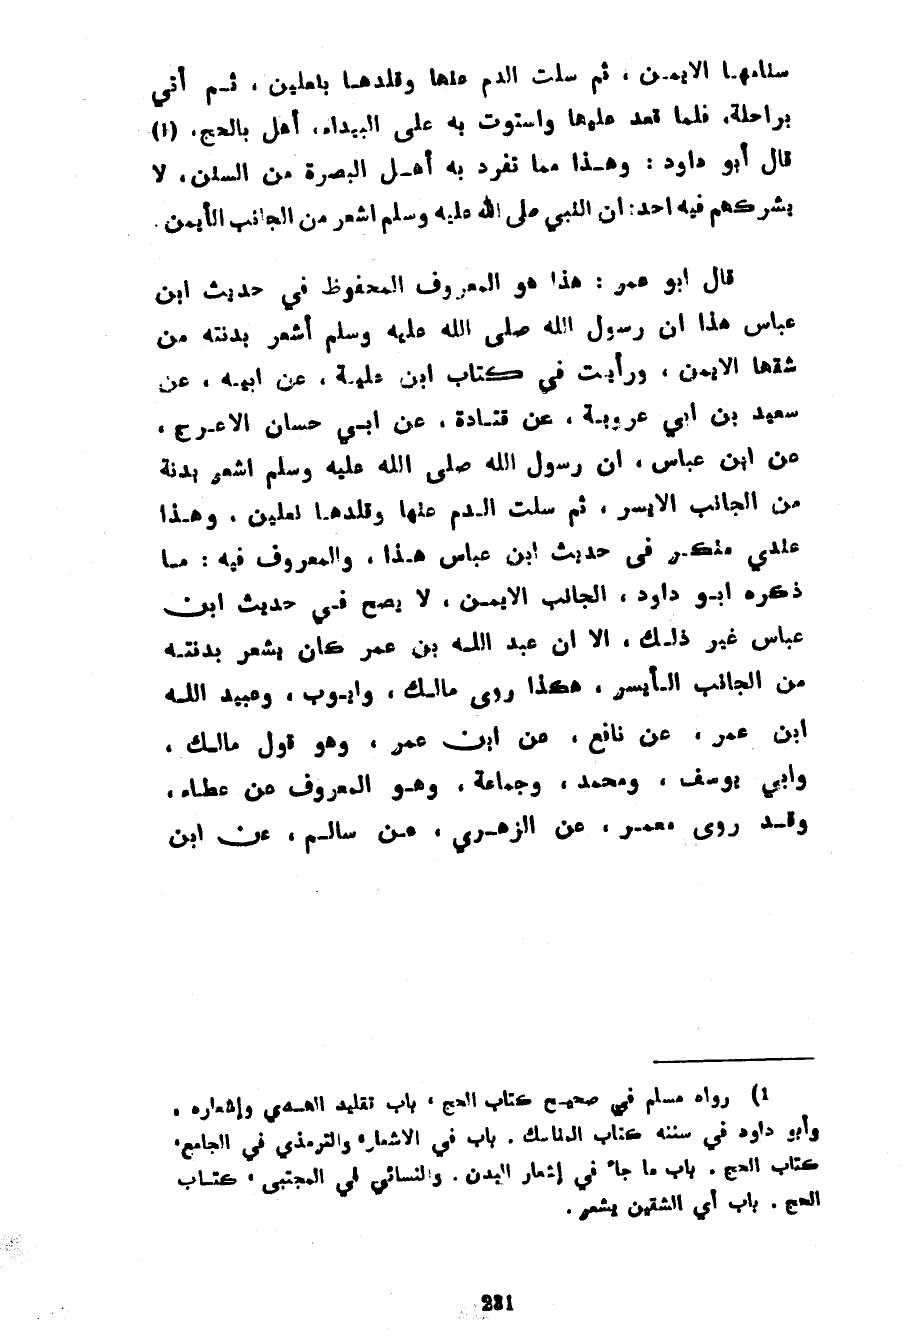 سنامهـا الايمـن ، ثم سلت الدم عنها وقلدهـا بنعلين ، ثـم أتي
براحلة، فلما قعد عليها واستوت به على البيداء، أهل بالحج، (1)
قال أبو داود : وهـذا مما تفرد به أهـل البصرة من السنن، لا
يشركهم فيه احد: ان النبي صلى الله عليه وسلم اشعر من الجانب الأيمن .
قال ابو عمر : هذا هو المعروف المحفوظ في حديث ابن
عباس هذا ان رسول الله صلى الله عليه وسلم أشعر بدنته من
شقها الايمن ، ورأيت في كتاب ابن علية ، عن ابيه ، عن
سعيد بن ابي عروبة ، عن قتـادة ، عن ابـي حسان الاعـرج ،
عن ابن عباس ، ان رسول الله صلى الله عليه وسلم اشعر بدنة
من الجانب الايسر ، ثم سلت الـدم عنها وقلدهـا نعلين ، وهـذا
عندي منكـر فى حديث ابن عباس هـذا ، والمعروف فيه : مـا
ذكره ابـو داود ، الجانب الايمـن ، لا يصح فـي حديث ابن
عباس غير ذلـك ، الا ان عبد اللـه بن عمر كان يشعر بدنتـه
من الجانب الـأيسر ، هكذا روى مالـك ، وايـوب ، وعبيد اللـه
ابن عمر ، عن نافع ، عن ابن عمر ، وهو قول مالـك ،
وابي يوسف ، ومحمد ، وجماعة ، وهـو المعروف عن عطـاء ،
وقـد روى معمـر ، عن الزهـري ، عـن سالـم ، عن ابن
1) رواه مسلم في صحيح كتاب الحج ، باب تقليد الهـدي وإشعاره ،
وأبو داود في سننه كتاب المناسك . باب في الاشعار، والترمذي في الجامع،
كتاب الحج . باب ما جاء في إشعار البدن . والنسائي في المجتبى ، كتـاب
الحج . باب أي الشقين يشعر .
231